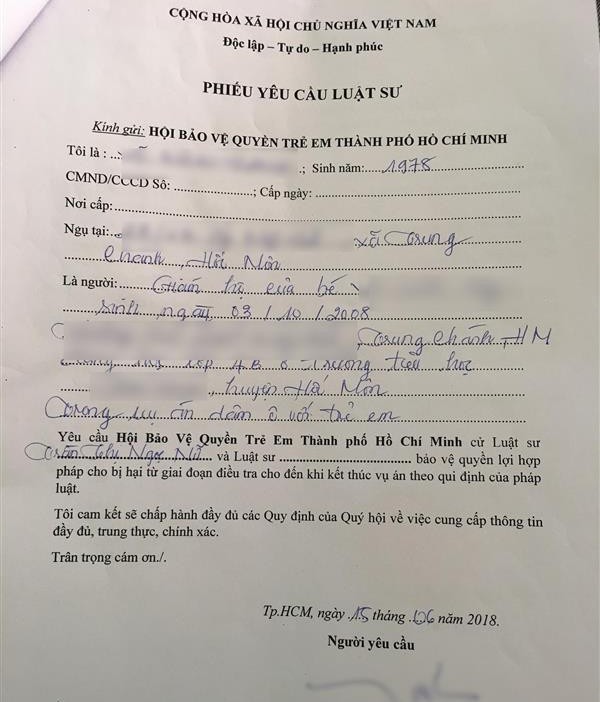 CỘNG HÒA XÃ HỘI CHỦ NGHĨA VIỆT NAM
Độc lập – Tự do – Hạnh phúc
PHIẾU YÊU CẦU LUẬT SƯ
Kính gửi: HỘI BẢO VỆ QUYỀN TRẺ EM THÀNH PHỐ HỒ CHÍ MINH
Tôi là : ; Sinh năm: 1978
CMND/CCCD Số: ; Cấp ngày:
Nơi cấp:
Ngụ tại: xã Trung
Chánh, Hốc Môn
Là người: Giám hộ của bé
sinh ngày 03/10/2008
Trung Chánh, HM
lớp 4B ở Trường tiểu học
, huyện Hốc Môn
Trong vụ án dâm ô với trẻ em
Yêu cầu Hội Bảo Vệ Quyền Trẻ Em Thành phố Hồ Chí Minh cử Luật sư
Trần Thị Ngọc Nữ và Luật sư bảo vệ quyền lợi hợp
pháp cho bị hại từ giai đoạn điều tra cho đến khi kết thúc vụ án theo qui định của pháp
luật.
Tôi cam kết sẽ chấp hành đầy đủ các Quy định của Quý hội về việc cung cấp thông tin
đầy đủ, trung thực, chính xác.
Trân trọng cám ơn./.
Tp.HCM, ngày 15 tháng 06 năm 2018.
Người yêu cầu